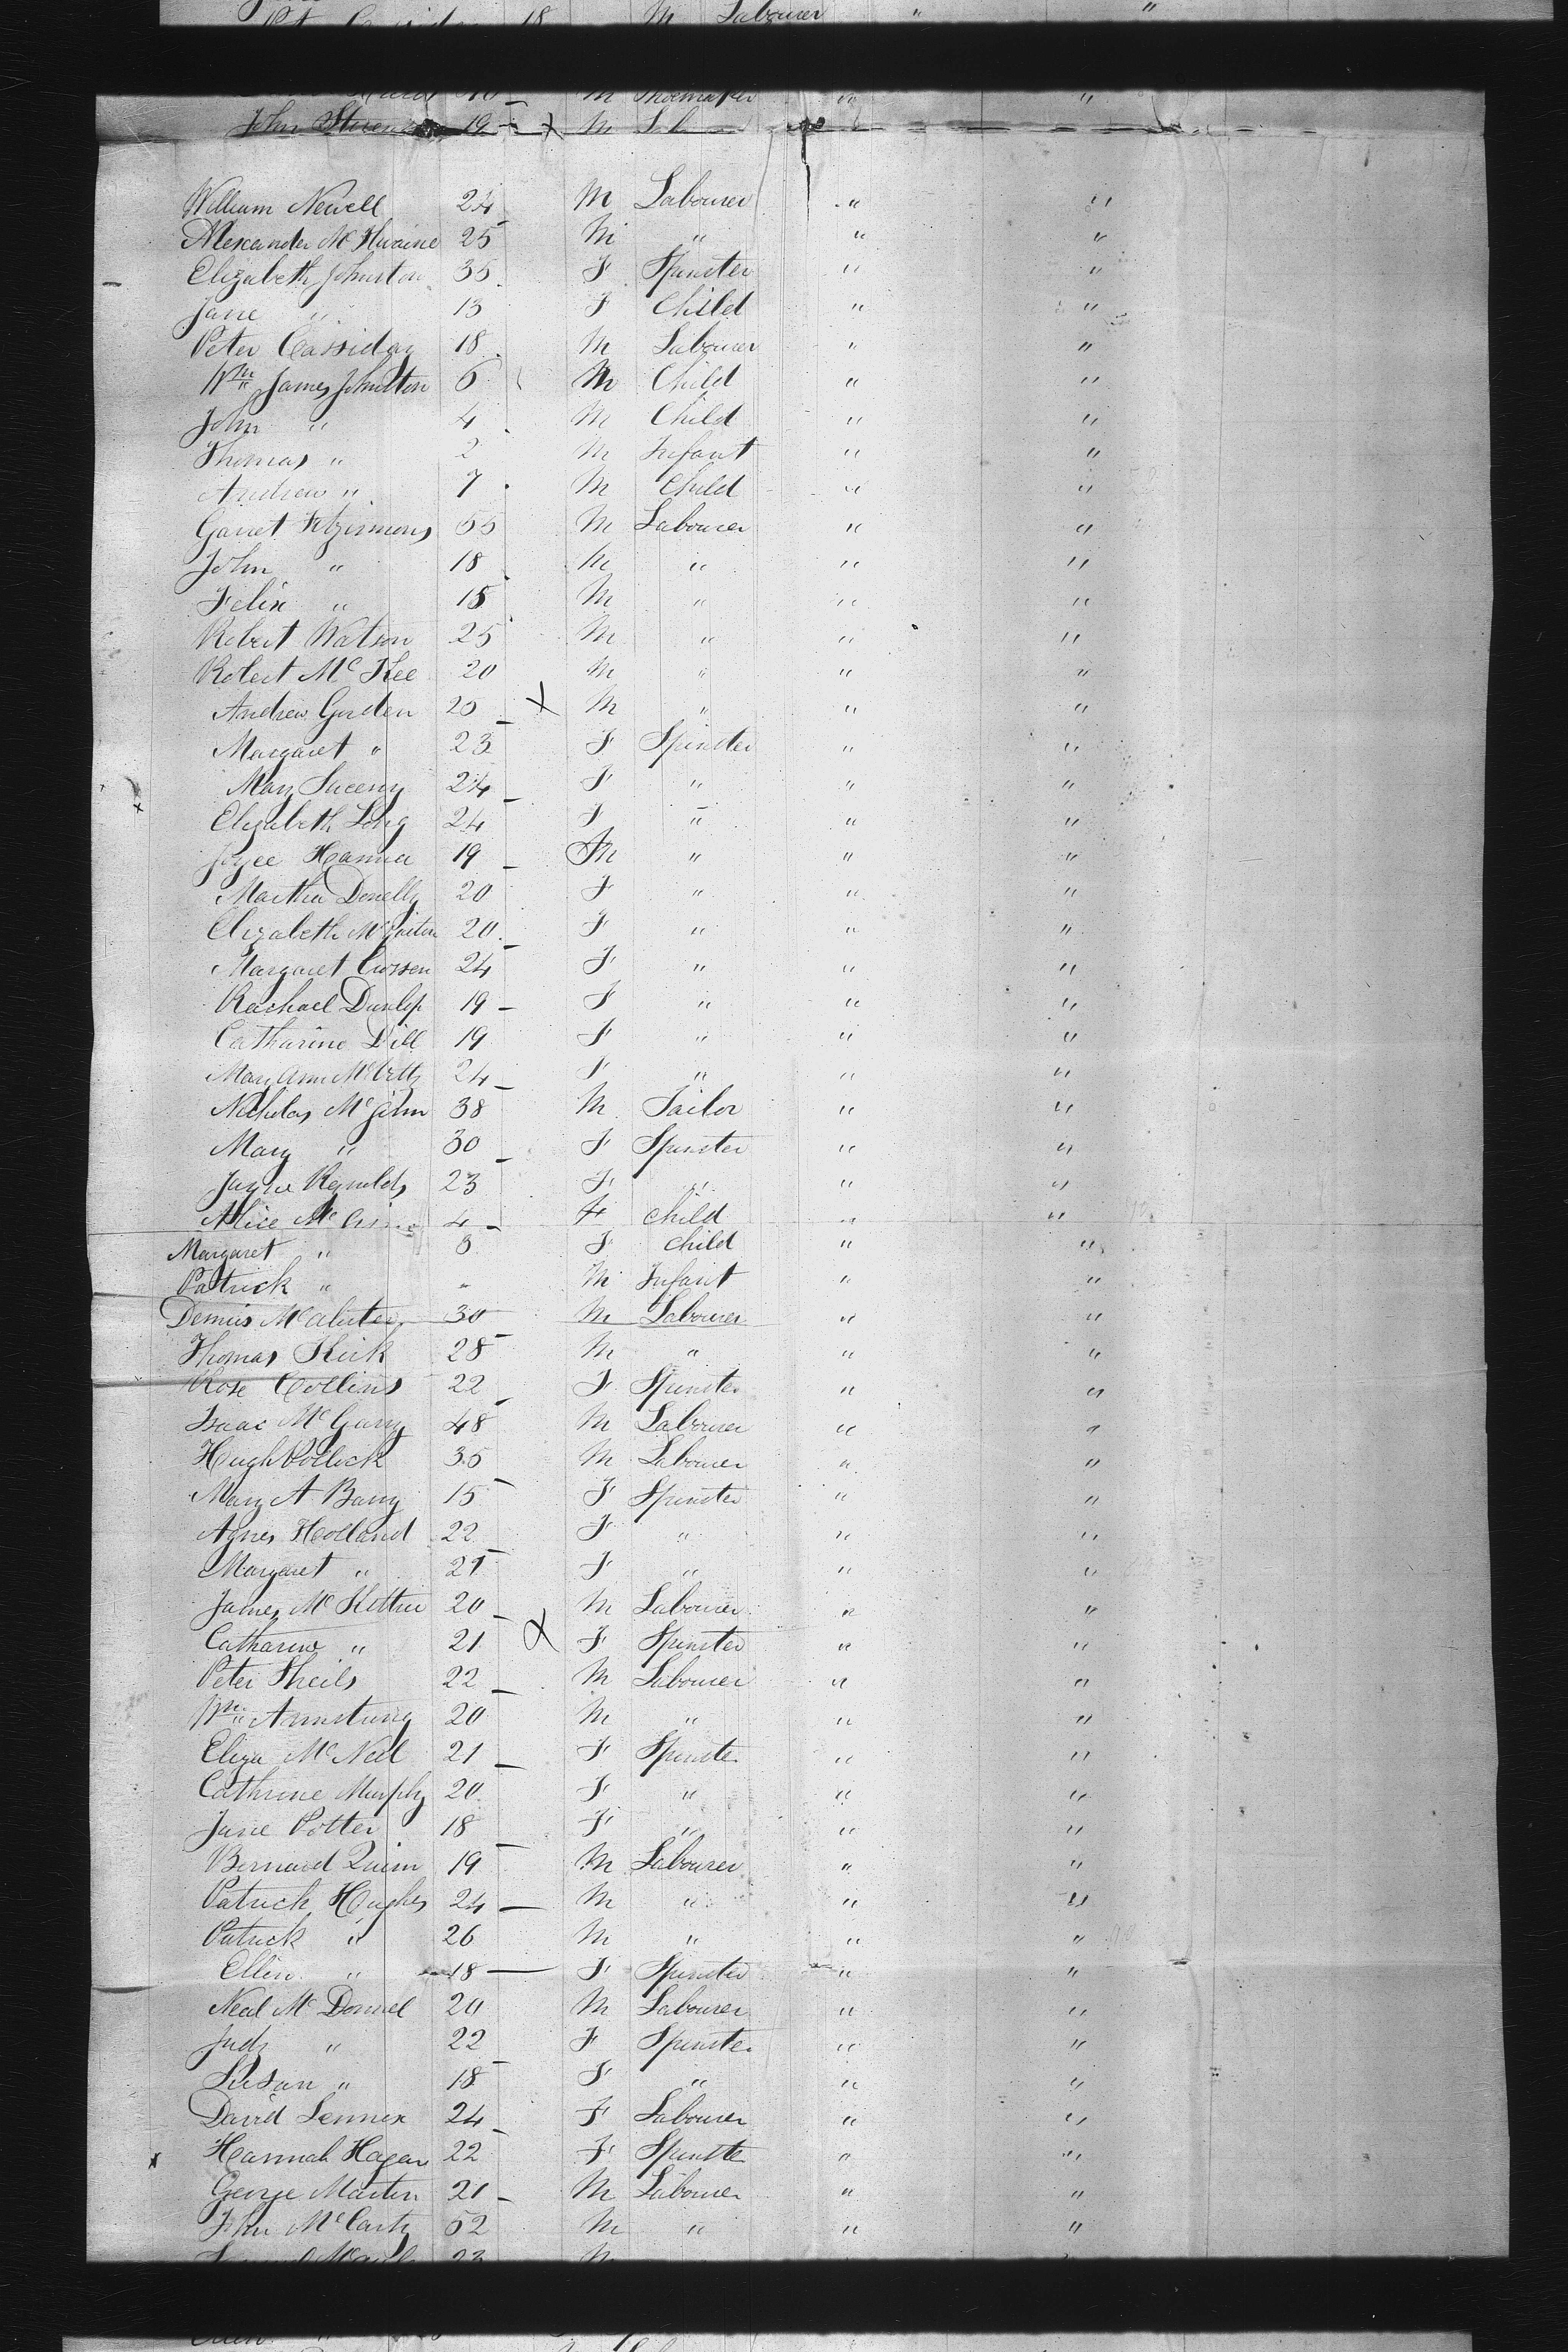 18 M Labourer " "
M Shoemaker " "
John 19 M
William Newell 24 M Labourer " "
Alexander McIlwaine 25 M " " "
Elizabeth Johnston 35 F Spinster " "
Jane " 13 F Child " "
Peter Cassiday 18 M Labourer " "
Wm James Johnston 6 M Child " "
John " 4 M Child " "
Thomas " 2 M Infant " "
Andrew " 7 M Child " "
Garret Fitzsimons 55 M Labourer " "
John " 18 M " " "
Felix " 15 M " " "
Robert Watson 25 M " " "
Robert McKee 20 M " " "
Andrew Gorden 20 X M " " "
Margaret " 23 F Spinster " "
Mary 24 F " " "
Elizabeth Long 24 F " " "
Joyce Hanna 19 M " " "
Martha Donelly 20 F " " "
Elizabeth 20 F " " "
Margaret Crossen 24 F " " "
Rachael Dunlop 19 F " " "
Catharine Dill 19 F " " "
Mary Ann 24 F " " "
Nicholas McGinn 38 M Tailor " "
Mary " 30 F Spinster " "
Reynolds 23 F " " "
Alice 4 F Child " "
Margaret " 3 F Child " "
Patrick " " M Infant " "
Dennis McAlister 30 M Labourer " "
Thomas Kirk 28 M " " "
Rose Collins 22 F Spinster " "
Isaac McGarry 48 M Labourer " "
Hugh Pollock 35 M Labourer " "
Mary A Barry 15 F Spinster " "
Agnes Holland 22 F " " "
Margaret " 21 F " " "
James 20 M Labourer " "
Catharine " 21 X F Spinster " "
Peter Sheils 22 M Labourer " "
Wm Armstrong 20 M " " "
Eliza McNeil 21 F Spinster " "
Cathrine Murphy 20 F " " "
Jane Potter 18 F " " "
Bernard Quinn 19 M Labourer " "
Patrick Hughes 24 M " " "
Patrick " 26 M " " "
Ellen " 18 F Spinster " "
Neal McDonnel 20 M Labourer " "
Judy " 22 F Spinster " "
Susan " 18 F " " "
David Lennox 24 F Labourer " "
Hannah Hagan 22 F Spinster " "
George Martin 21 M Labourer " "
John McCarty 52 M " " "
23 M